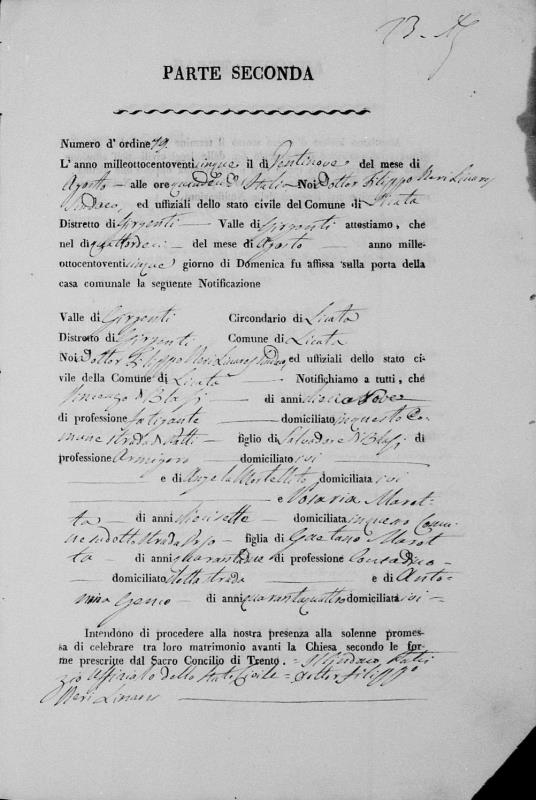 PARTE SECONDA
Numero d' ordine 79
L' anno milleottocentoventicinque il di Ventinove del mese di
Agosto alle ore quindeci d'Italia Noi Dottor Filippo Neri Linares
Sindaco, ed uffiziali dello stato civile del Comune di Licata
Distretto di Girgenti Valle di Girgenti attestiamo, che
nel di quattordeci del mese di Agosto anno mille-
ottocentoventicinque giorno di Domenica fu affissa sulla porta della
casa comunale la seguente Notificazione
Valle di Girgenti Circondario di Licata
Distretto di Girgenti Comune di Licata
Noi Dottor Filippo Neri Linares Sindaco, ed uffiziali dello stato ci-
vile della Comune di Licata Notifichiamo a tutti, che
Vincenzo Di Blasi di anni dieci e nove
di professione domiciliato in questo Co-
mune Strada figlio di Salvadore Di Blasi di
professione Armigero domiciliato ivi
e di Angela Mortellito domiciliata ivi
e Rosaria Marot-
ta di anni diecisette domiciliata in questo Comu-
ne sudetto Strada figlia di Gaetano Marot
ta di anni quarantadue di professione Contadino
domiciliato detta strada e di Anto-
nina di anni quarantaquattro domiciliata ivi
Intendono di procedere alla nostra presenza alla solenne promes-
sa di celebrare tra loro matrimonio avanti la Chiesa secondo le for-
me prescritte dal Sacro Concilio di Trento. = Il Sindaco, Patri
zio Uffiziale dello Stato Civile = Dottor Filippo
Neri Linares